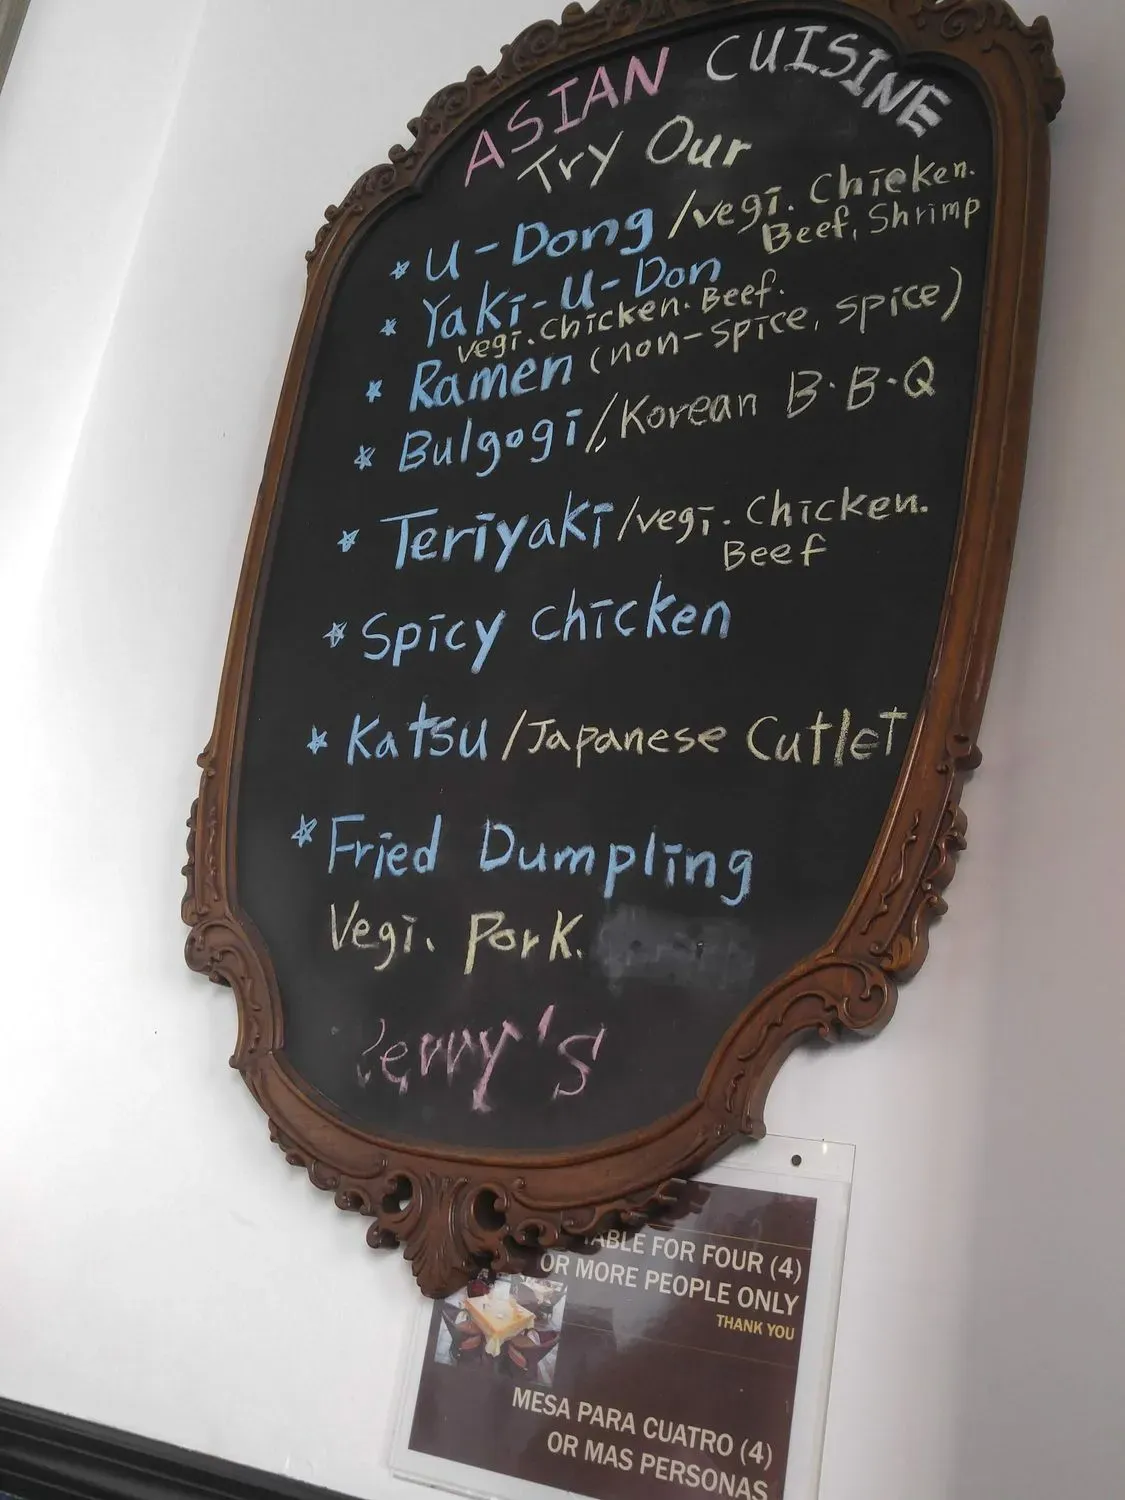 ASIAN CUISINE
Try Our
* U-Dong /vegi. Chicken.
Beef, Shrimp
* Yaki-U-Don
vegi. chicken. Beef.
* Ramen (non-spice, spice)
* Bulgogi/Korean B·B·Q
* Teriyaki/vegi. Chicken.
Beef
* Spicy chicken
* Katsu /Japanese Cutlet
* Fried Dumpling
Vegi. Pork.
TABLE FOR FOUR (4)
OR MORE PEOPLE ONLY
THANK YOU
MESA PARA CUATRO (4)
OR MAS PERSONAS